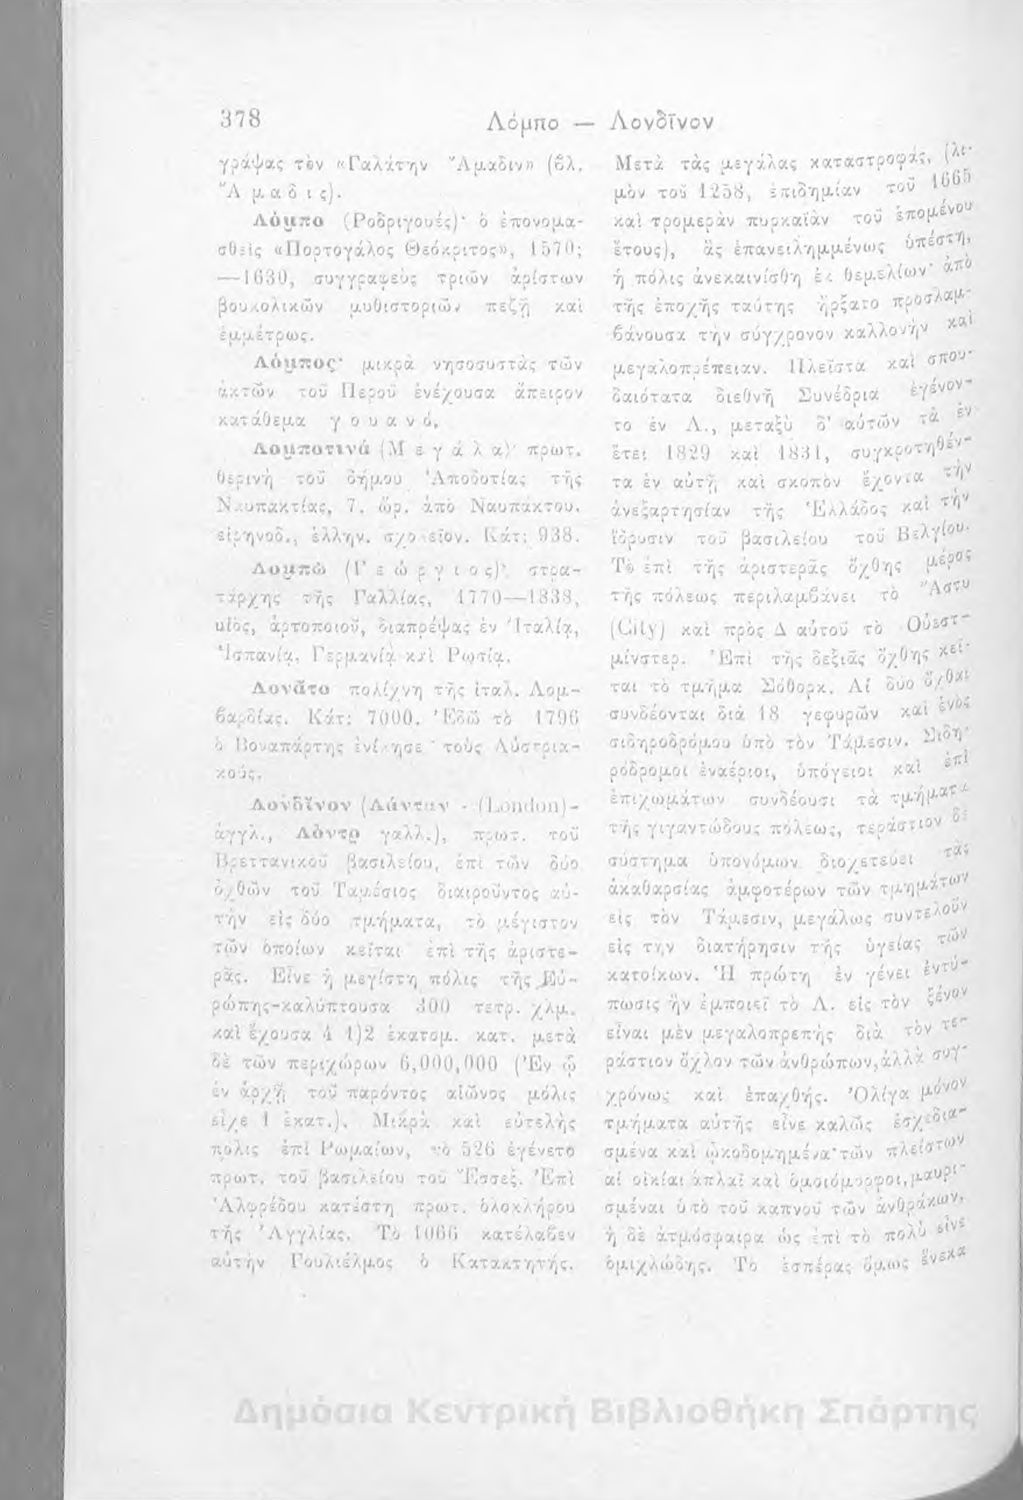 378
Λόμπο — Λονδῖνον
γράψας τὸν «Γαλάτην Ἄμαδιν» (βλ.
Ἄμαδις).
Λόμπο (Ροδριγουές)· ὁ ἐπονομα-
σθεὶς «Πορτογάλος Θεόκριτος», 1570;
—1630, συγγραφεὺς τριῶν ἀρίστων
βουκολικῶν μυθιστοριῶν πεζῇ καὶ
ἐμμέτρως.
Λόμπος· μικρὰ νησοσυστὰς τῶν
ἀκτῶν τοῦ Περοῦ ἐνέχουσα ἄπειρον
κατάθεμα γουανό.
Λομποτινά (Μεγάλα)· πρωτ.
θερινὴ τοῦ δήμου Ἀποδοτίας τῆς
Ναυπακτίας, 7. ὡρ. ἀπὸ Ναυπάκτου.
εἰρηνοδ., ἑλλην. σχολεῖον. Κάτ: 938.
Λομπώ (Γεώργιος)· στρα-
τάρχης τῆς Γαλλίας, 1770—1838,
υἱὸς, ἀρτοποιοῦ, διαπρέψας ἐν Ἰταλίᾳ,
Ἱσπανίᾳ, Γερμανίᾳ καὶ Ρωσίᾳ.
Λονᾶτο πολίχνη τῆς ἰταλ. Λομ-
βαρδίας. Κάτ: 7000. Ἐδῶ τὸ 1796
ὁ Βοναπάρτης ἐνίκησε τοὺς Αὐστρια-
κούς.
Λονδῖνον (Λάνταν - (London)-
ἀγγλ., Λόντρ γαλλ.), πρωτ. τοῦ
Βρεττανικοῦ βασιλείου, ἐπὶ τῶν δύο
ὀχθῶν τοῦ Ταμέσιος διαιροῦντος αὐ-
τὴν εἰς δύο τμήματα, τὸ μέγιστον
τῶν ὁποίων κεῖται ἐπὶ τῆς ἀριστε-
ρᾶς. Εἶνε ἡ μεγίστη πόλις τῆς Εὐ-
ρώπης-καλύπτουσα 300 τετρ. χλμ.
καὶ ἔχουσα 4 1)2 ἑκατομ. κατ. μετὰ
δὲ τῶν περιχώρων 6,000,000 (Ἐν ᾧ
ἐν ἀρχῇ τοῦ παρόντος αἰῶνος μόλις
εἶχε 1 ἑκατ.). Μικρὰ καὶ εὐτελὴς
πόλις ἐπὶ Ρωμαίων, τὸ 526 ἐγένετο
πρωτ. τοῦ βασιλείου τοῦ Ἔσσεξ. Ἐπὶ
Ἀλφρέδου κατέστη πρωτ. ὁλοκλήρου
τῆς Ἀγγλίας. Τὸ 1066 κατέλαβεν
αὐτὴν Γουλιέλμος ὁ Κατακτητής.
Μετὰ τὰς μεγάλας καταστροφάς, (λι-
μὸν τοῦ 1258, ἐπιδημίαν τοῦ 1665
καὶ τρομερὰν πυρκαϊὰν τοῦ ἑπομένου
ἔτους), ἃς ἐπανειλημμένως ὑπέστη,
ἡ πόλις ἀνεκαινίσθη ἐκ θεμελίων· ἀπὸ
τῆς ἐποχῆς ταύτης ἤρξατο προσλαμ-
βάνουσα τὴν σύγχρονον καλλονὴν καὶ
μεγαλοπρέπειαν. Πλεῖστα καὶ σπου-
δαιότατα διεθνῆ Συνέδρια ἐγένον-
το ἐν Λ., μεταξὺ δ' αὐτῶν τὰ ἐν
ἔτει 1829 καὶ 1831, συγκροτηθέν-
τα ἐν αὐτῇ καὶ σκοπὸν ἔχοντα τὴν
ἀνεξαρτησίαν τῆς Ἑλλάδος καὶ τὴν
ἵδρυσιν τοῦ βασιλείου τοῦ Βελγίου.
Τὸ ἐπὶ τῆς ἀριστερᾶς ὄχθης μέρος
τῆς πόλεως περιλαμβάνει τὸ Ἄστυ
(City) καὶ πρὸς Δ αὐτοῦ τὸ Οὐεστ-
μίνστερ. Ἐπὶ τῆς δεξιᾶς ὄχθης κεῖ-
ται τὸ τμῆμα Σόθορκ. Αἱ δύο ὄχθαι
συνδέονται διὰ 18 γεφυρῶν καὶ ἑνὸς
σιδηροδρόμου ὑπὸ τὸν Τάμεσιν. Σιδη-
ρόδρομοι ἐναέριοι, ὑπόγειοι καὶ ἐπὶ
ἐπιχωμάτων συνδέουσι τὰ τμήματα
τῆς γιγαντώδους πόλεως, τεράστιον δὲ
σύστημα ὑπονόμων διοχετεύει τὰς
ἀκαθαρσίας ἀμφοτέρων τῶν τμημάτων
εἰς τὸν Τάμεσιν, μεγάλως συντελοῦν
εἰς τὴν διατήρησιν τῆς ὑγείας τῶν
κατοίκων. Ἡ πρώτη ἐν γένει ἐντύ-
πωσις ἣν ἐμποιεῖ τὸ Λ. εἰς τὸν ξένον
εἶναι μὲν μεγαλοπρεπὴς διὰ τὸν τε-
ράστιον ὄχλον τῶν ἀνθρώπων, ἀλλὰ συγ-
χρόνως καὶ ἐπαχθής. Ὀλίγα μόνον
τμήματα αὐτῆς εἶνε καλῶς ἐσχεδια-
σμένα καὶ ᾠκοδομημένα· τῶν πλείστων
αἱ οἰκίαι ἁπλαῖ καὶ ὁμοιόμορφοι, μαυρι-
σμέναι ὑπὸ τοῦ καπνοῦ τῶν ἀνθράκων,
ἡ δὲ ἀτμόσφαιρα ὡς ἐπὶ τὸ πολὺ εἶνε
ὁμιχλώδης. Τὸ ἑσπέρας ὅμως ἕνεκα
Δημόσια Κεντρική Βιβλιοθήκη Σπάρτης